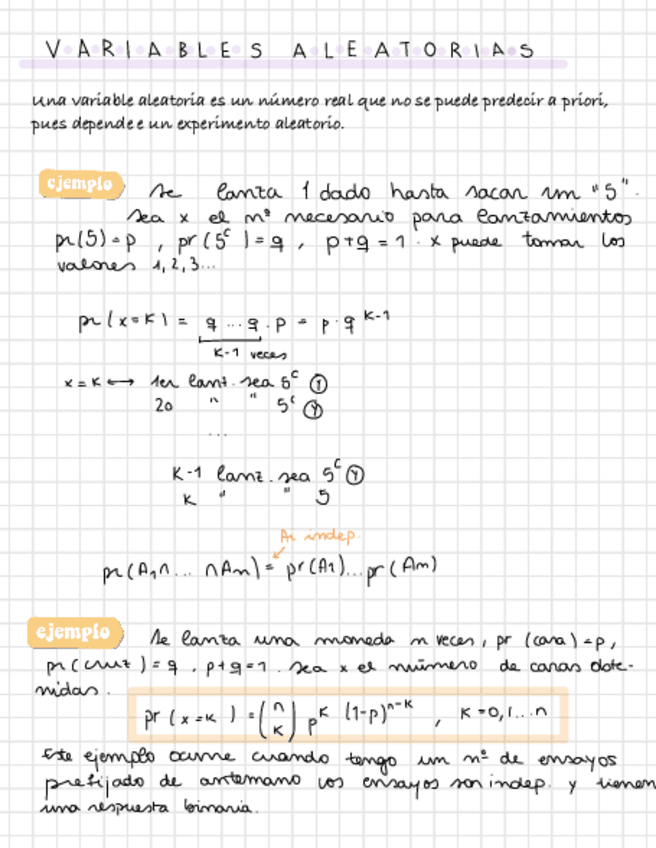 VARIABLES ALEATORIAS
una variable aleatoria es un número real que no se puede predecir a priori,
pues depende e un experimento aleatorio.
ejemplo Se lanza 1 dado hasta sacar un "5".
Sea x el nº necesario para lanzamientos
pr(5)=p , pr(5ᶜ)=q , p+q=1. x puede tomar los
valores 1,2,3...
pr(x=K) = q...q.p = p·q^K-1
K-1 veces
x=K ⟷ 1er lanz. sea 5ᶜ Ⓨ
20 " " 5ᶜ Ⓨ
...
K-1 lanz. sea 5ᶜ Ⓨ
K " " 5
Ai indep.
pr(A₁∩...∩An) = pr(A1)...pr(An)
ejemplo Se lanza una moneda n veces, pr(cara)=p,
pr(cruz)=q, p+q=1. Sea x el número de caras obte-
nidas.
pr(x=K) = (n K) p^K (1-p)^n-K , K=0,1...n
Este ejemplo ocurre cuando tengo un nº de ensayos
prefijado de antemano los ensayos son indep. y tienen
una respuesta binaria.